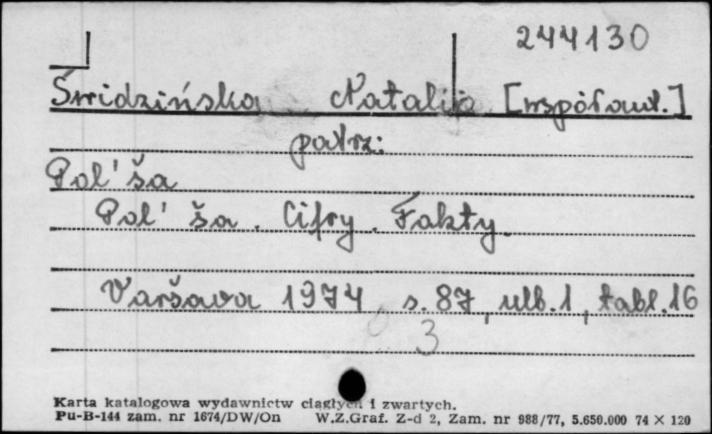 244130
Świdzińska Natalia [współaut.]
patrz:
Pol'ša
Pol'ša. Cifry. Fakty.
Varšava 1974, s. 87, nlb. 1, tabl. 16
3
Karta katalogowa wydawnictw ciągłych i zwartych.
Pu-B-144 zam. nr 1674/DW/On W.Z.Graf. Z-d 2, Zam. nr 988/77, 5.650.000 74 × 120